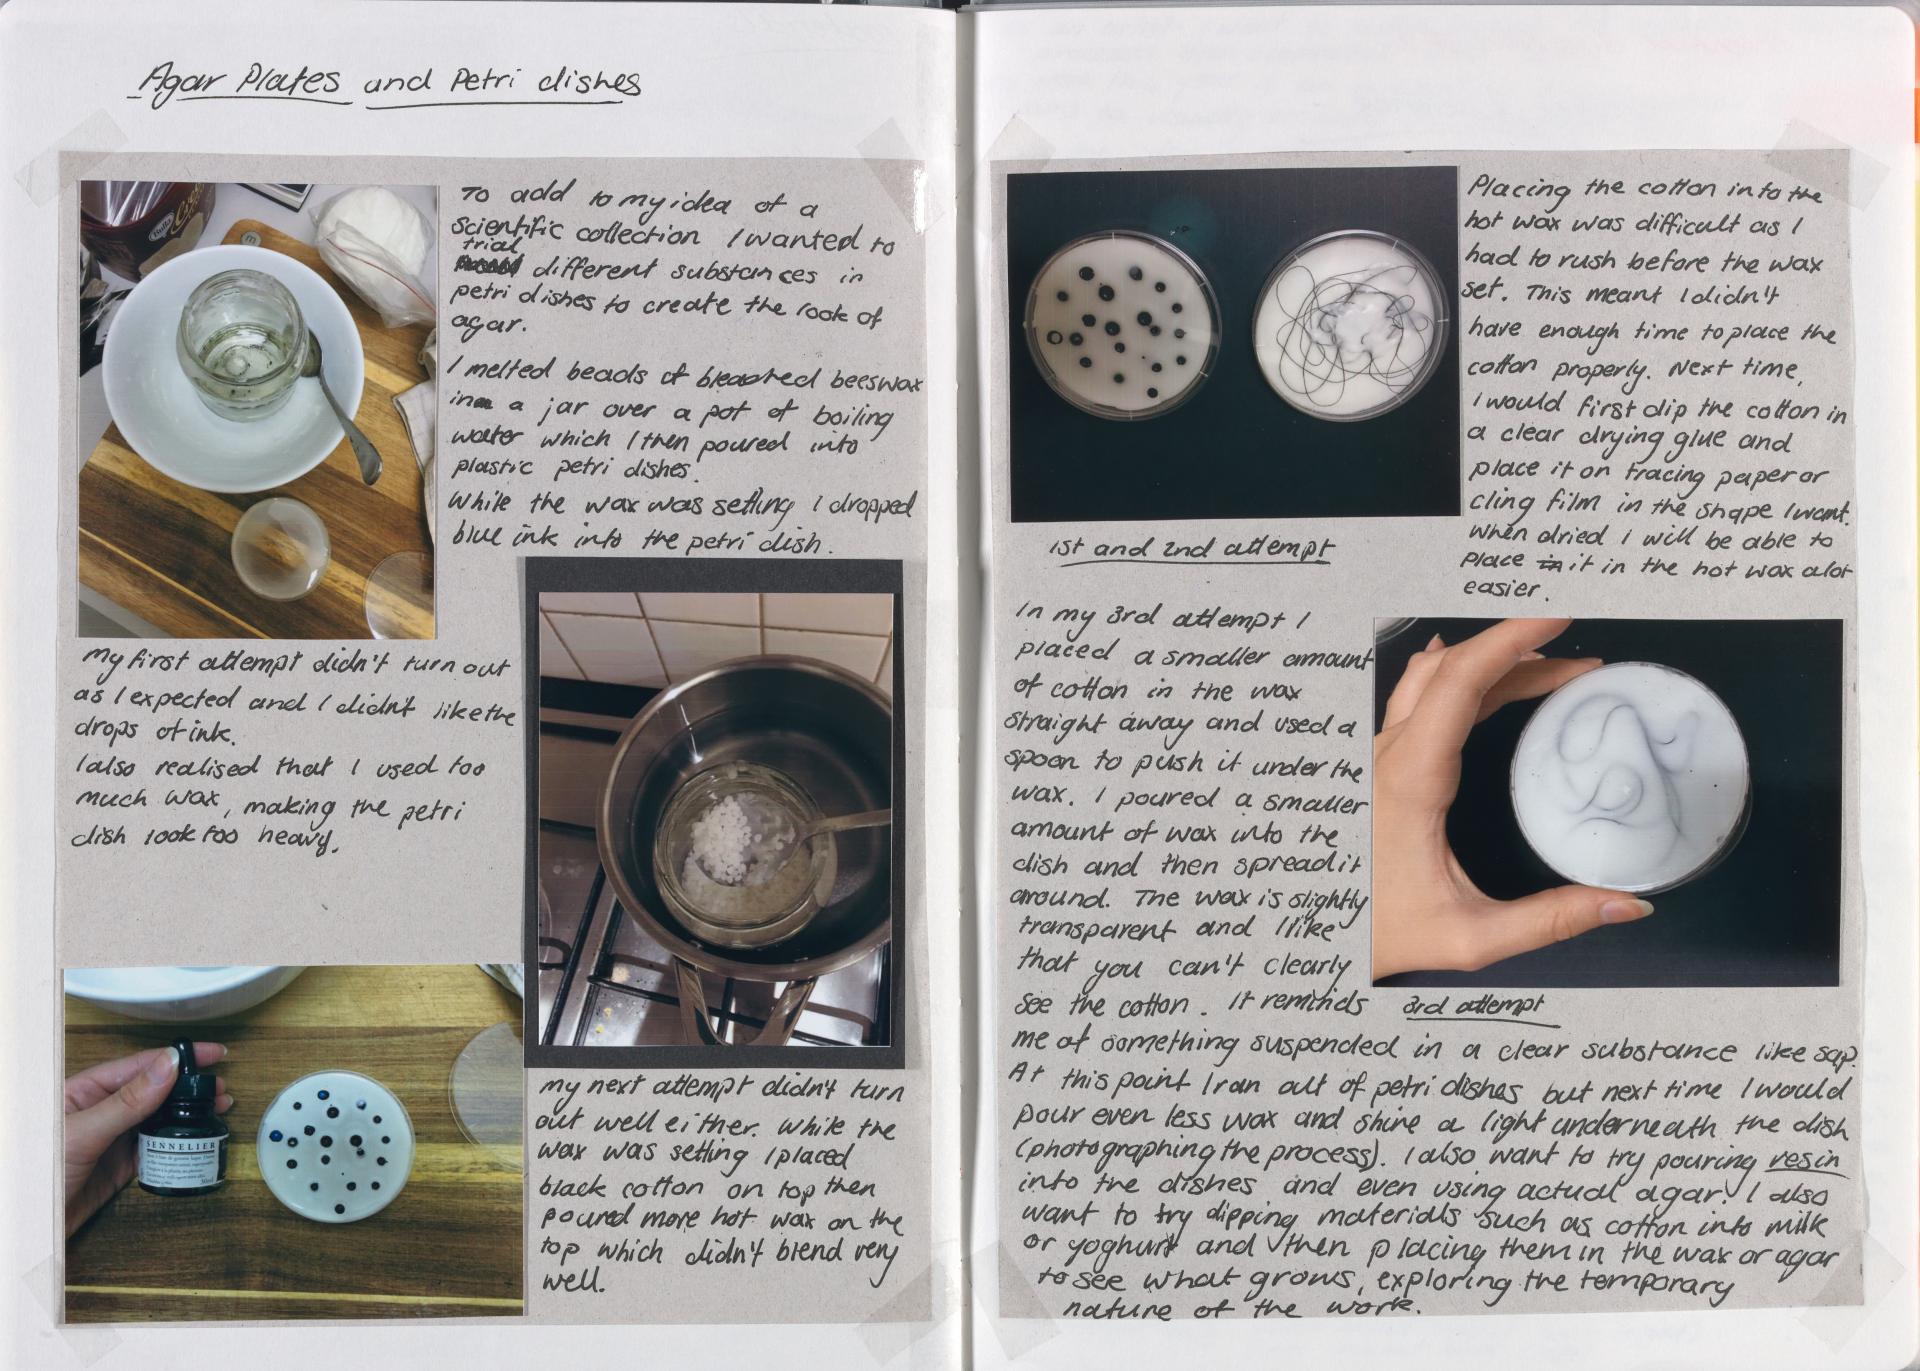 Agar Plates and Petri dishes
To add to my idea of a
scientific collection I wanted to
trial
different substances in
petri dishes to create the look of
agar.
I melted beads of bleached beeswax
in a jar over a pot of boiling
water which I then poured into
plastic petri dishes.
While the wax was setting I dropped
blue ink into the petri dish.
My first attempt didn't turn out
as I expected and I didn't like the
drops of ink.
I also realised that I used too
much wax, making the petri
dish look too heavy.
SENNELIER
My next attempt didn't turn
out well either. While the
wax was setting I placed
black cotton on top then
poured more hot wax on the
top which didn't blend very
well.
Placing the cotton into the
hot wax was difficult as I
had to rush before the wax
set. This meant I didn't
have enough time to place the
cotton properly. Next time,
I would first dip the cotton in
a clear drying glue and
place it on tracing paper or
cling film in the shape I want.
When dried I will be able to
place in it in the hot wax alot
easier.
1st and 2nd attempt
In my 3rd attempt I
placed a smaller amount
of cotton in the wax
straight away and used a
spoon to push it under the
wax. I poured a smaller
amount of wax into the
dish and then spread it
around. The wax is slightly
transparent and I like
that you can't clearly
see the cotton. It reminds
3rd attempt
me of something suspended in a clear substance like sap.
At this point I ran out of petri dishes but next time I would
pour even less wax and shine a light underneath the dish
(photographing the process). I also want to try pouring resin
into the dishes and even using actual agar. I also
want to try dipping materials such as cotton into milk
or yoghurt and then placing them in the wax or agar
to see what grows, exploring the temporary
nature of the work.